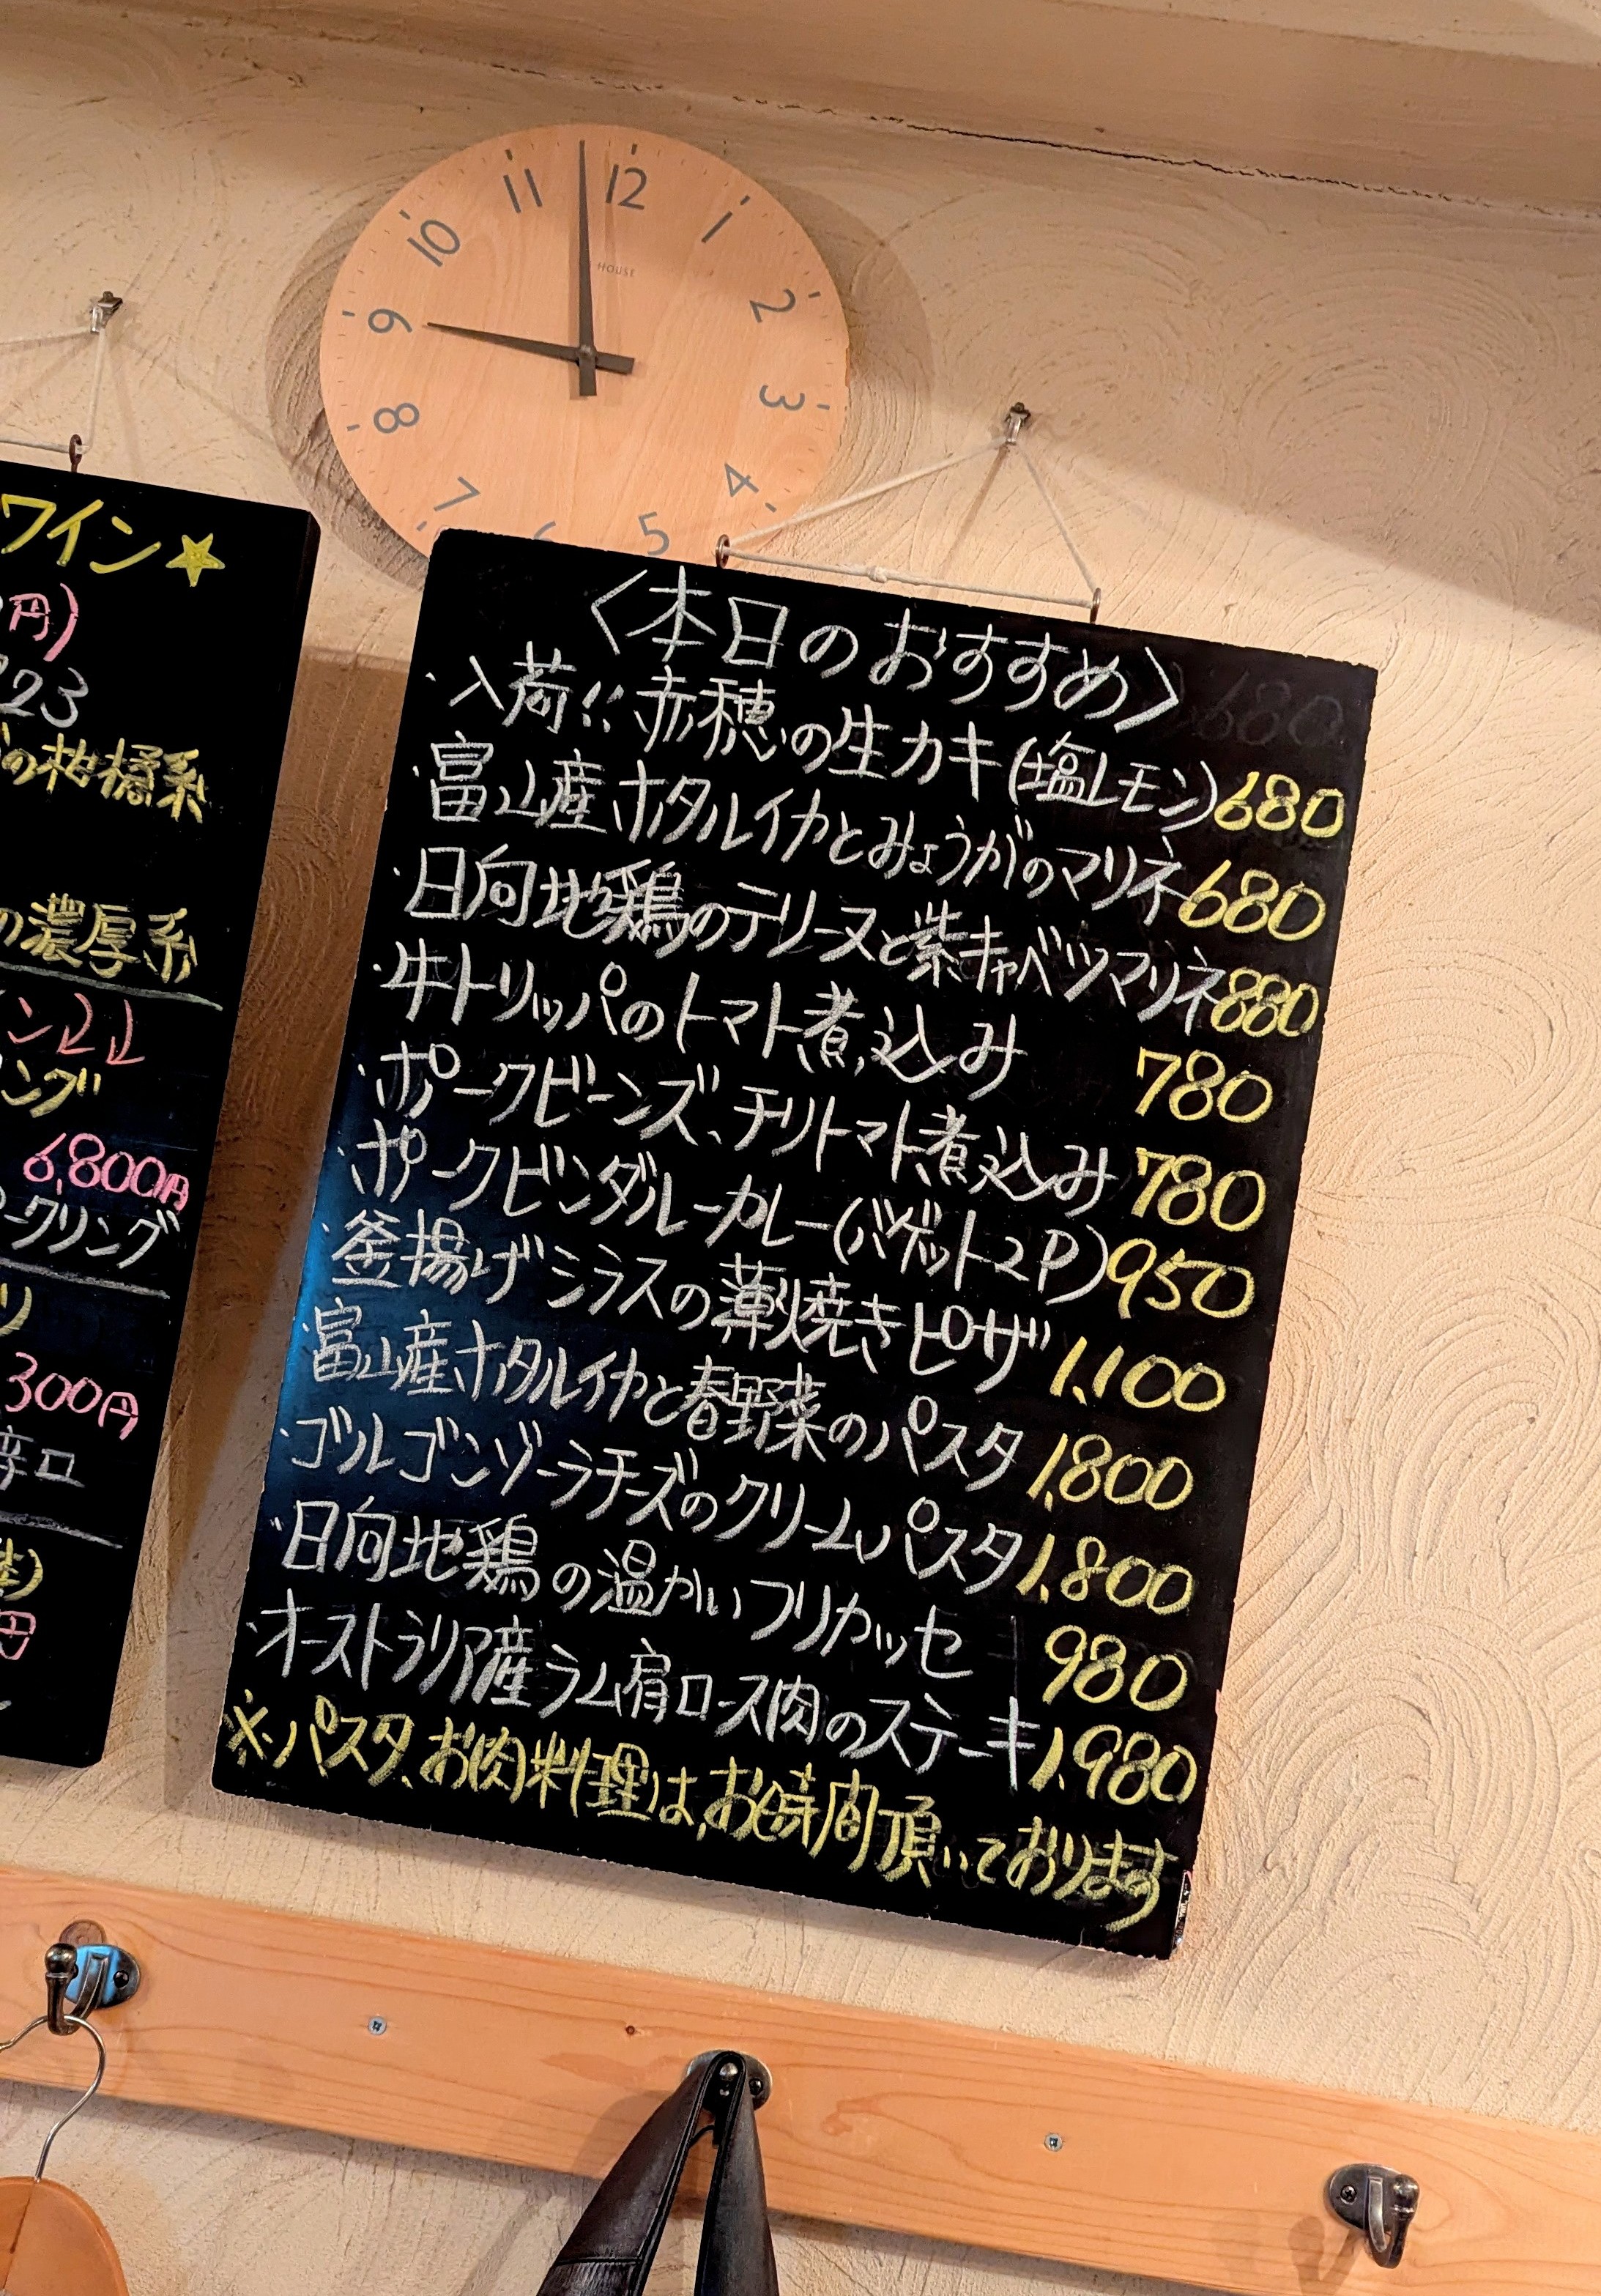 11
12
1
10
2
9
3
8
4
7
6
5
HOUSE
ワイン☆
円)
23
の柑橘系
の濃厚系
ング
6,800円
ークリング
300円
辛口
〈本日のおすすめ〉
・入荷!!赤穂の生カキ(塩レモン)680
・富山産ホタルイカとみょうがのマリネ680
・日向地鶏のテリーヌと紫キャベツマリネ880
・牛トリッパのトマト煮込み 780
・ポークビーンズ、チリトマト煮込み 780
・ポークビンダルーカレー(バゲット2P)950
・釜揚げシラスの薬焼きピザ 1,100
・富山産ホタルイカと春野菜のパスタ 1,800
・ゴルゴンゾーラチーズのクリームパスタ 1,800
・日向地鶏の温かいフリカッセ 980
・オーストラリア産ラム肩ロース肉のステーキ1,980
※パスタ、お肉料理は、お時間頂いております